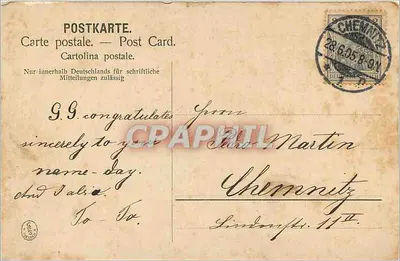 POSTKARTE.
Carte postale. — Post Card.
Cartolina postale.
Nur innerhalb Deutschlands für schriftliche
Mitteilungen zulässig
CHEMNITZ
28.6.05.8-9N.
G. G. congratulates
sincerely to you
name-day.
And
To - To.
Herrn
Martin
Chemnitz
Lindenstr 11 II.
CPARAMA